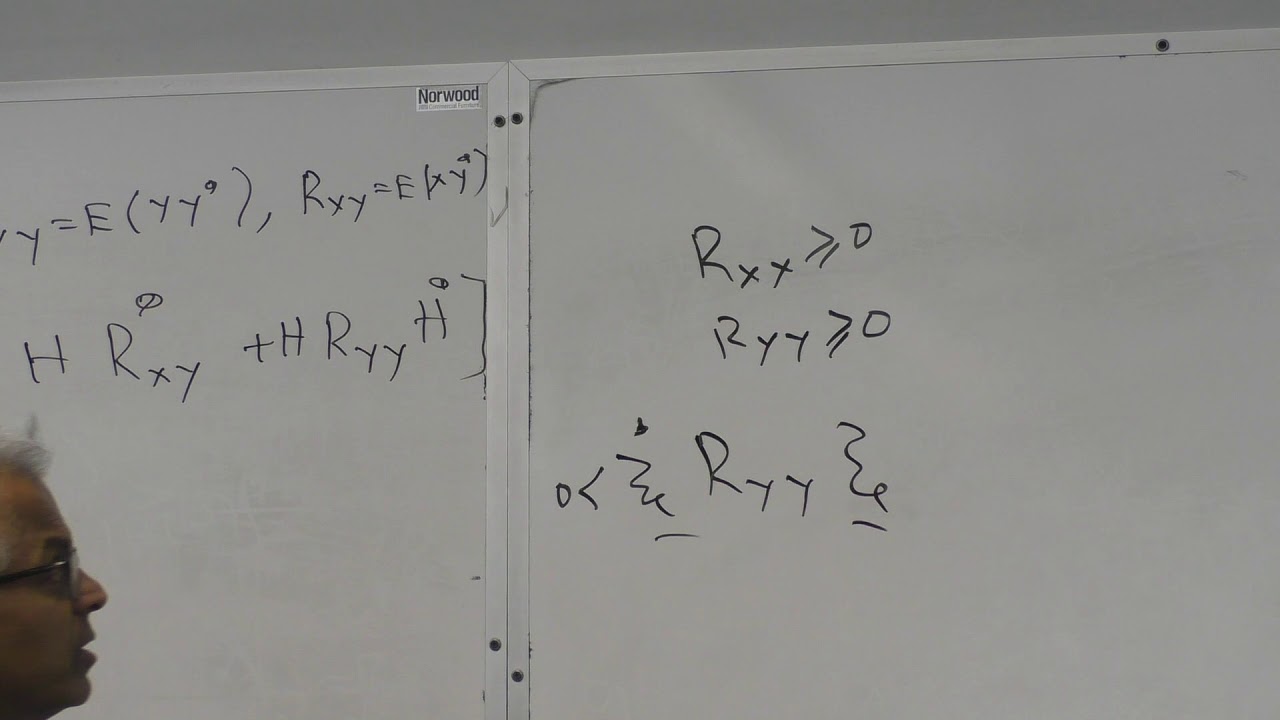 Norwood
yy = E(yy°), R_xy = E(xy°)
H R°_xy + H R_yy H° ]
R_xx ⩾ 0
R_yy ⩾ 0
0 < ξ° R_yy ξ